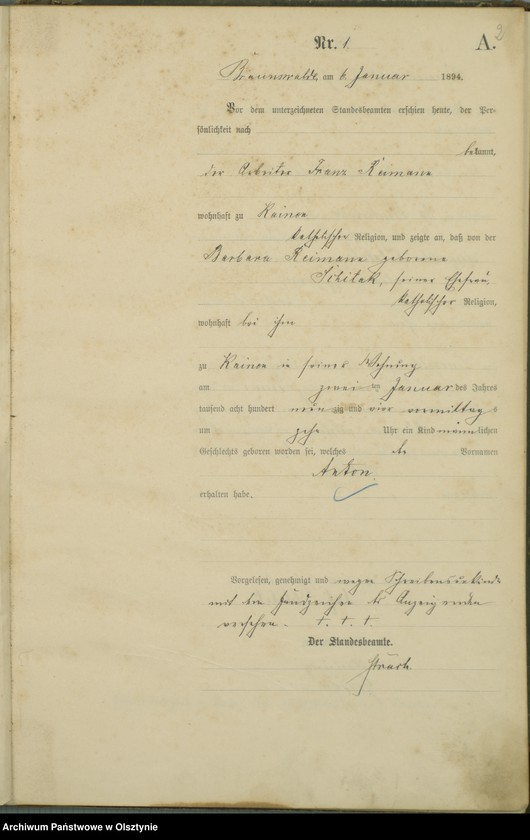 2
Nr. 1 A.
Braunswalde, am 6. Januar 1894.
Vor dem unterzeichneten Standesbeamten erschien heute, der Per-
sönlichkeit nach
bekannt,
der Arbeiter Franz Reimann
wohnhaft zu
katholischer Religion, und zeigte an, daß von der
Barbara Reimann geborene
seiner Ehefrau,
katholischer Religion,
wohnhaft bei ihm
zu in seiner Wohnung
am zwei ten Januar des Jahres
tausend acht hundert neunzig und vier vormittags
um zehn Uhr ein Kind männlichen
Geschlechts geboren worden sei, welches den Vornamen
Anton
erhalten habe.
Vorgelesen, genehmigt und wegen Schreibensunkunde
mit dem Handzeichen des Anzeigenden
versehen. †. †. †.
Der Standesbeamte.
Archiwum Państwowe w Olsztynie